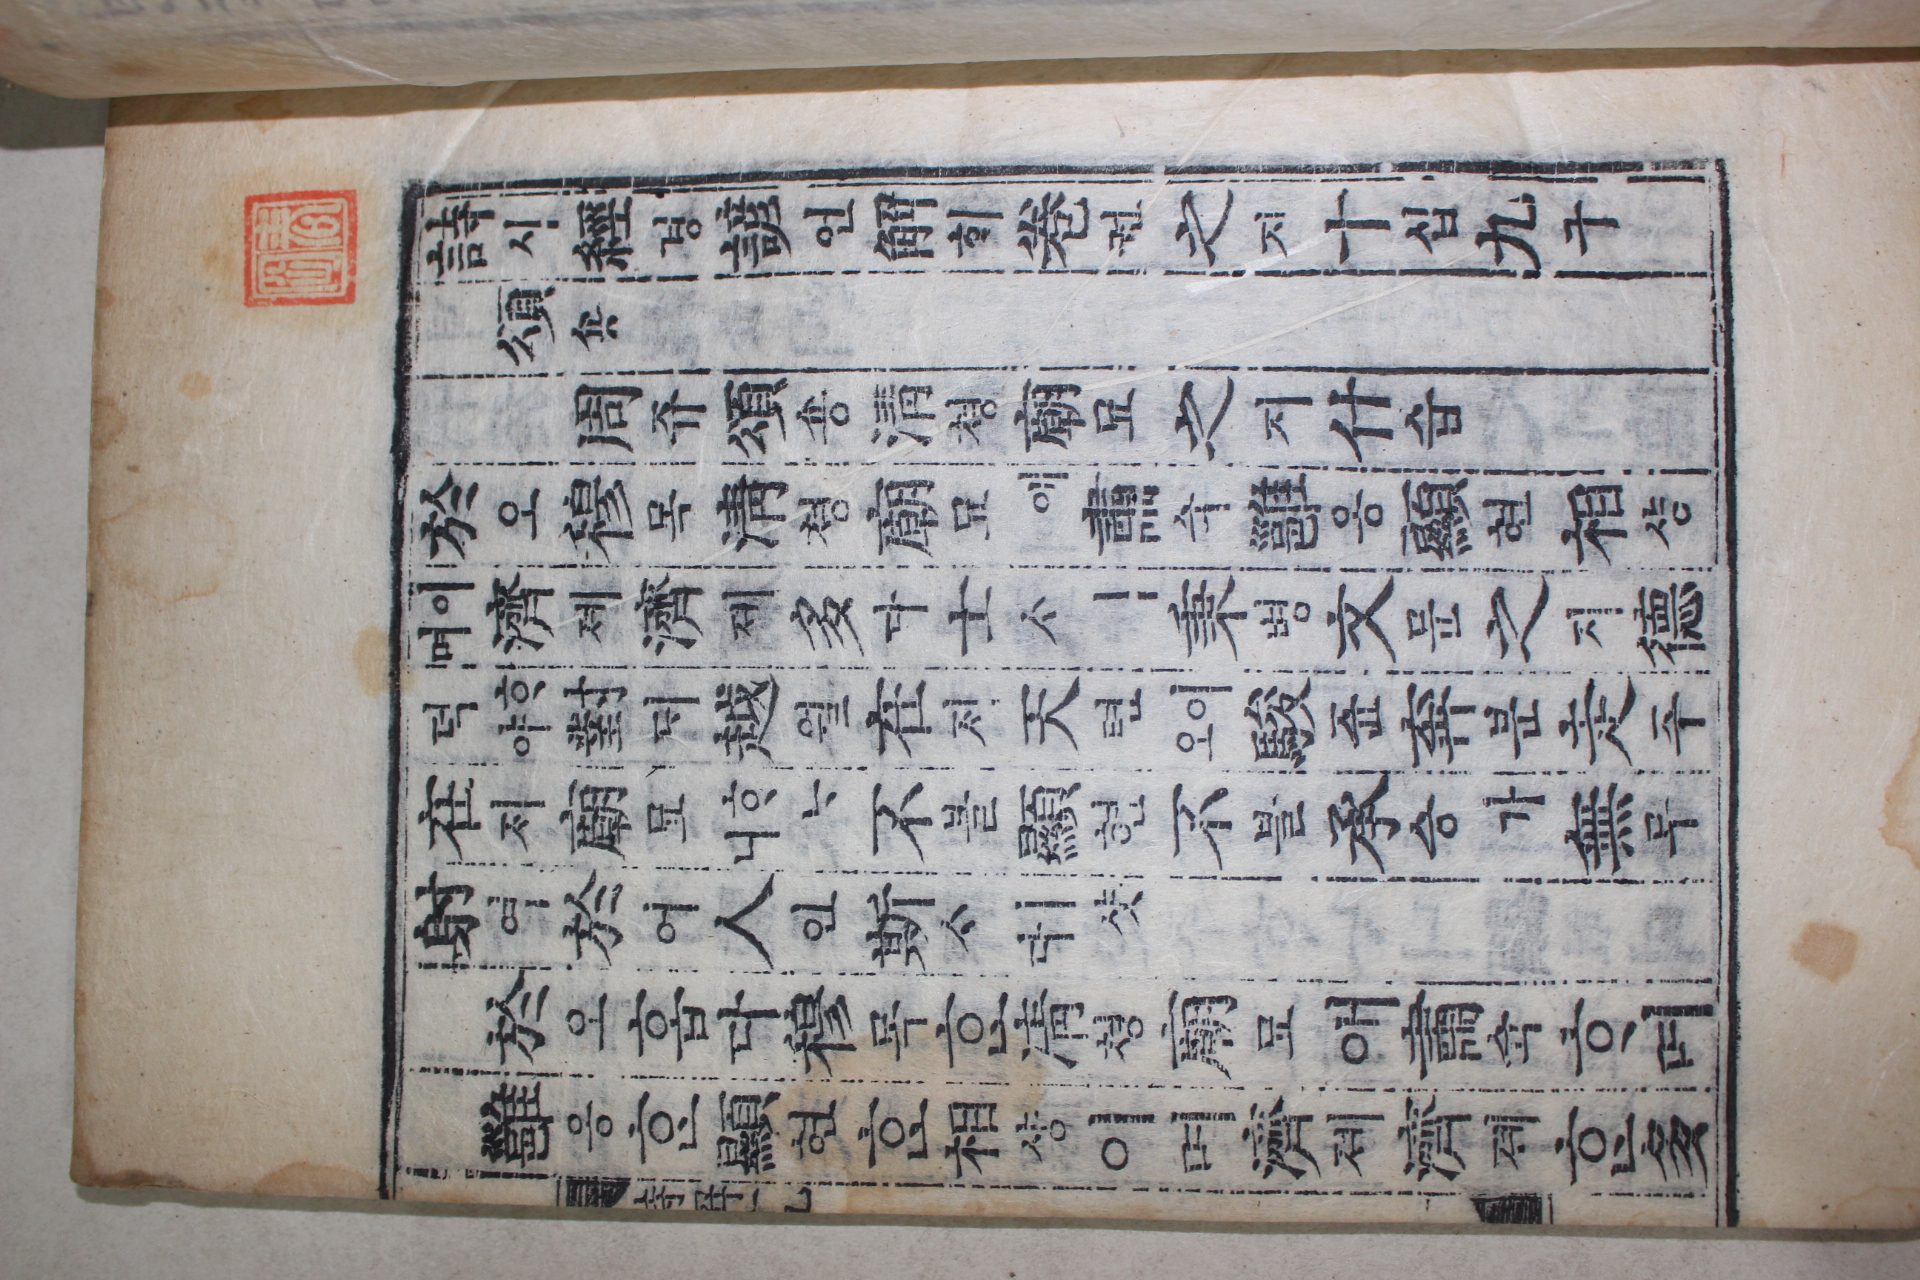 詩시經경諺언解ᄒᆡ卷권之지十십九구
頌숑
周쥬頌숑淸쳥廟묘之지什습
於오穆목淸쳥廟묘이肅슉雝옹顯현相샹
이며濟졔濟졔多다士ᄉᆞㅣ秉병文문之지德
덕ᄒᆞ야對ᄃᆡ越월在ᄌᆡ天텬이오駿쥰奔분走주
在ᄌᆡ廟묘ᄒᆞᄂᆞ니不블顯현不블承승가無무
射역於어人인斯ᄉᆞㅣ샷다
於오홉다穆목ᄒᆞᆫ淸쳥廟묘애肅슉ᄒᆞ며
雝옹ᄒᆞᆫ顯현ᄒᆞᆫ相샹이며濟졔濟졔ᄒᆞᆫ多